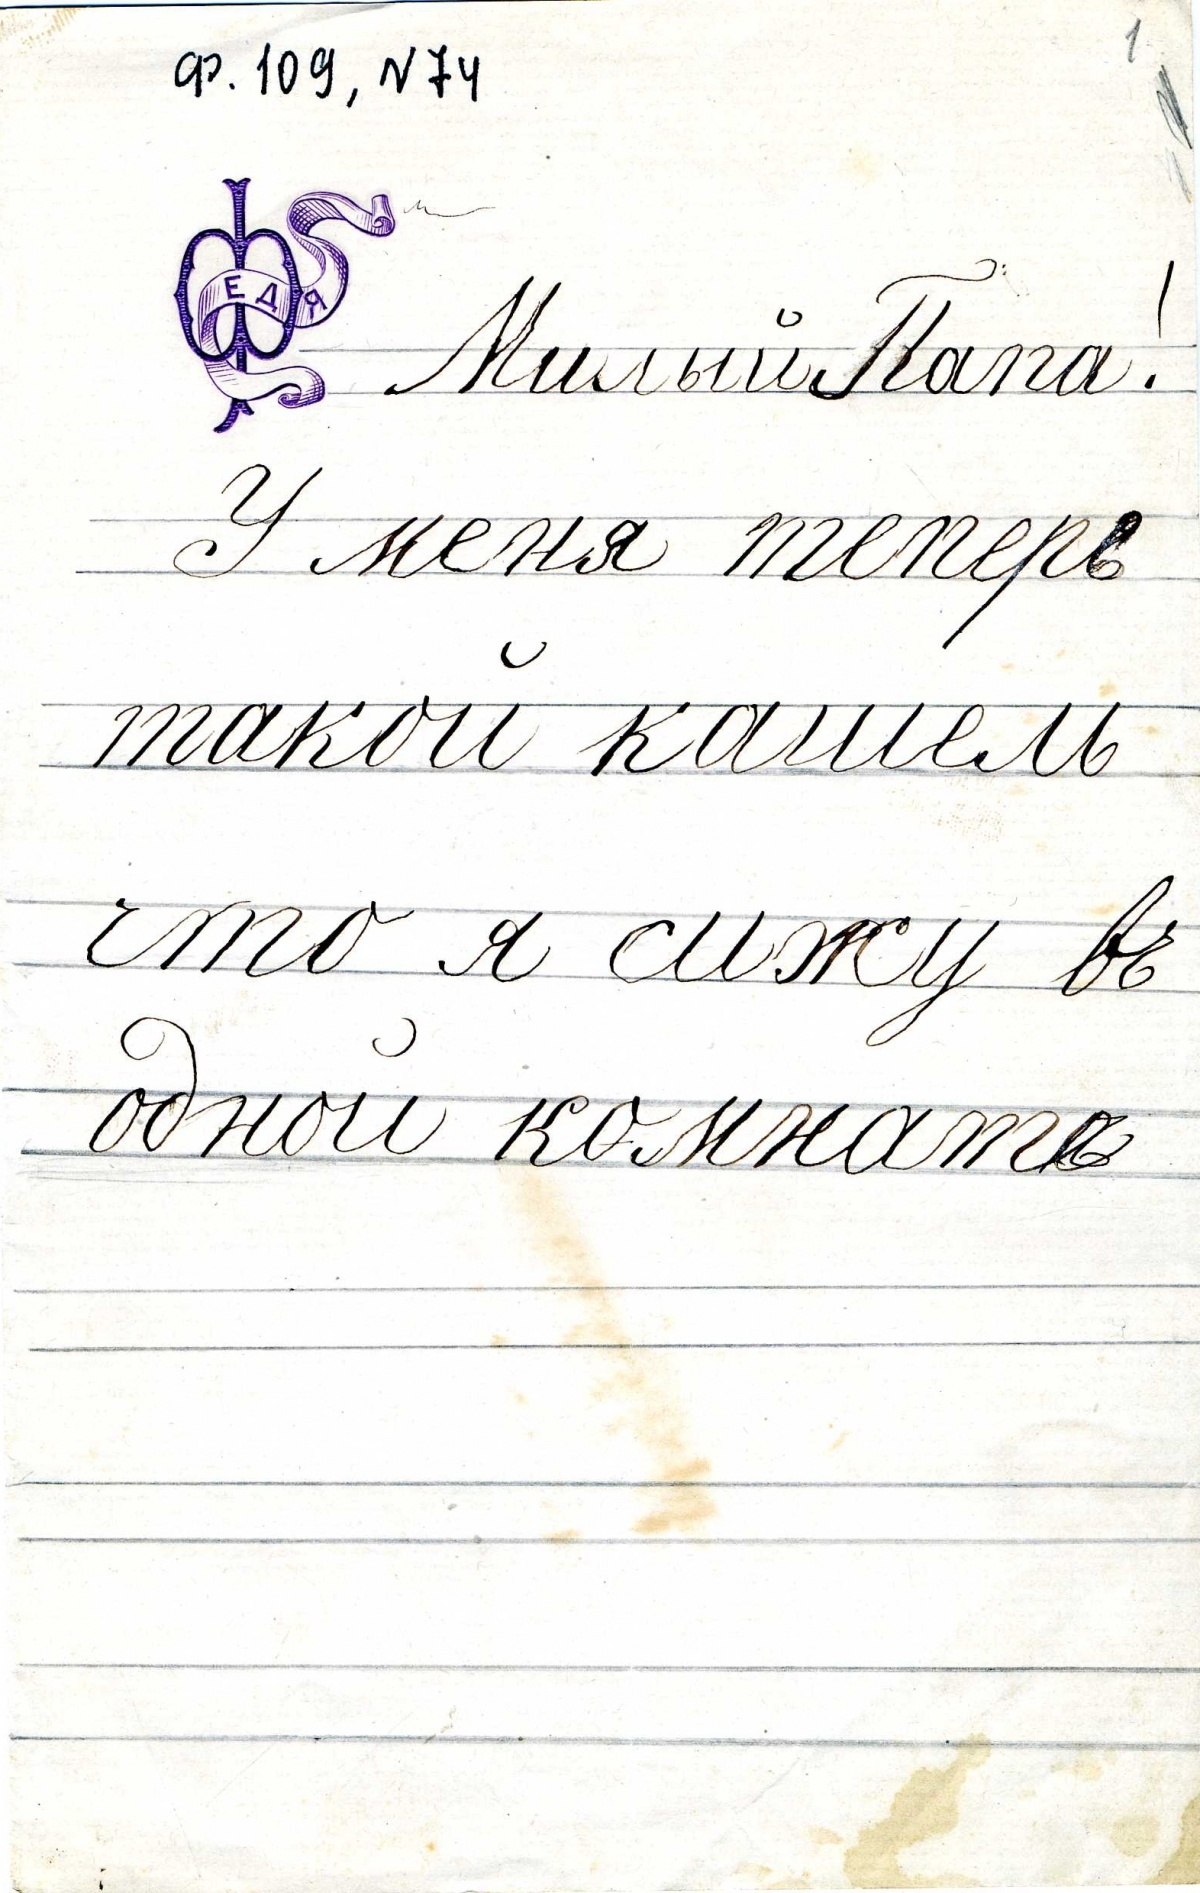 1
Ф. 109, N 74
ФЕДЯ
Милый Папа!
У меня теперь
такой кашель
что я сижу въ
одной комнатѣ